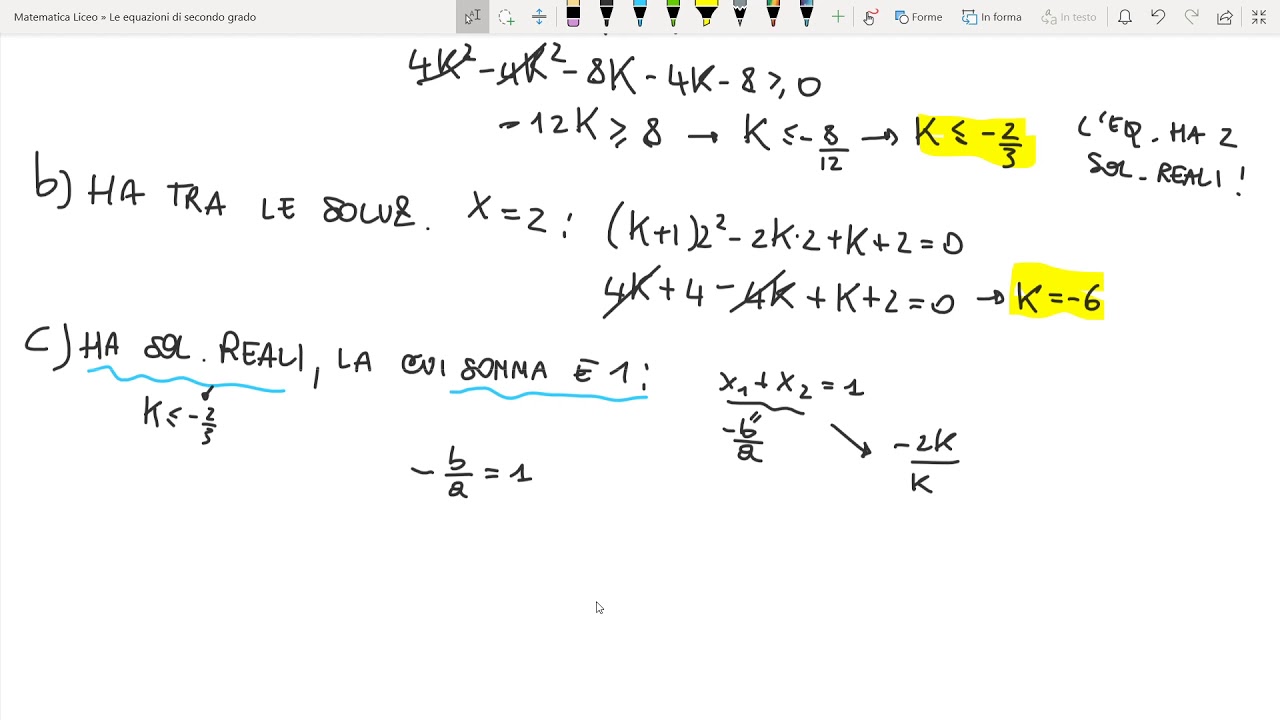 Matematica Liceo » Le equazioni di secondo grado
Forme In forma In testo
4K² - 4K² - 8K - 4K - 8 ≥ 0
- 12K ≥ 8 → K ≤ - 8/12 → K ≤ - 2/3
L'EQ. HA 2
SOL. REALI!
b) HA TRA LE SOLUZ. X = 2: (K+1)2² - 2K·2 + K + 2 = 0
4K + 4 - 4K + K + 2 = 0 → K = -6
C) HA SOL. REALI, LA CUI SOMMA È 1:
K ≤ - 2/3
X₁ + X₂ = 1
-b/a
- b/a = 1
-2K/K